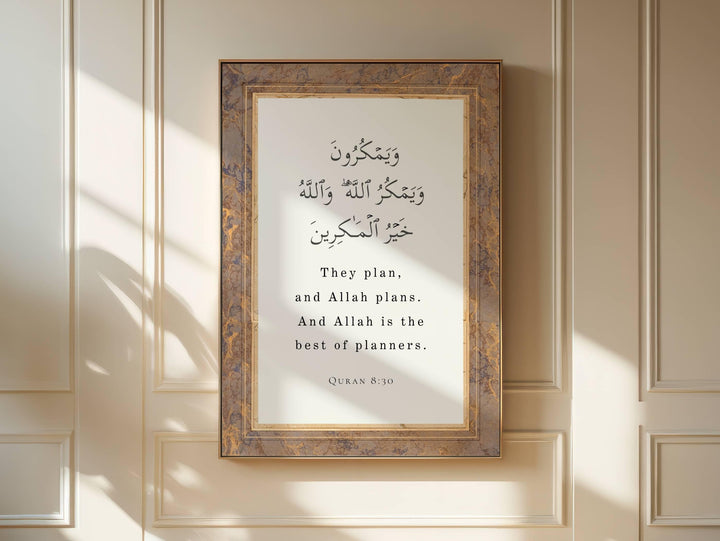 وَيَمْكُرُونَ
وَيَمْكُرُ ٱللَّهُ ۖ وَٱللَّهُ
خَيْرُ ٱلْمَـٰكِرِينَ
They plan,
and Allah plans.
And Allah is the
best of planners.
Quran 8:30